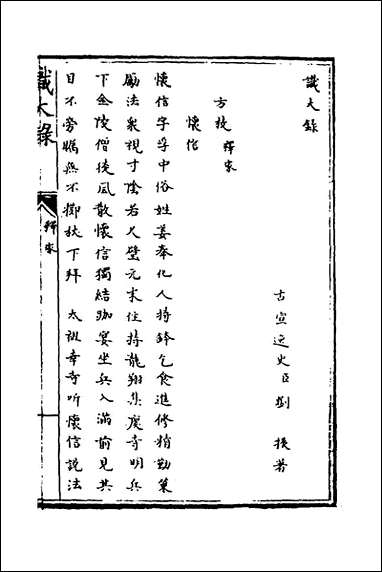 識大錄
古宣逸史臣劉 振著
方技 釋家
懷信
懷信字孚中俗姓姜奉化人持鉢乞食進修精勤策
勵法衆視寸陰若尺璧元末住持龍翔集慶寺明兵
下金陵僧徒風散懷信獨結跏宴坐兵入滿前見其
目不旁矚無不擲杖下拜 太祖幸寺聽懷信說法
識大錄
釋家